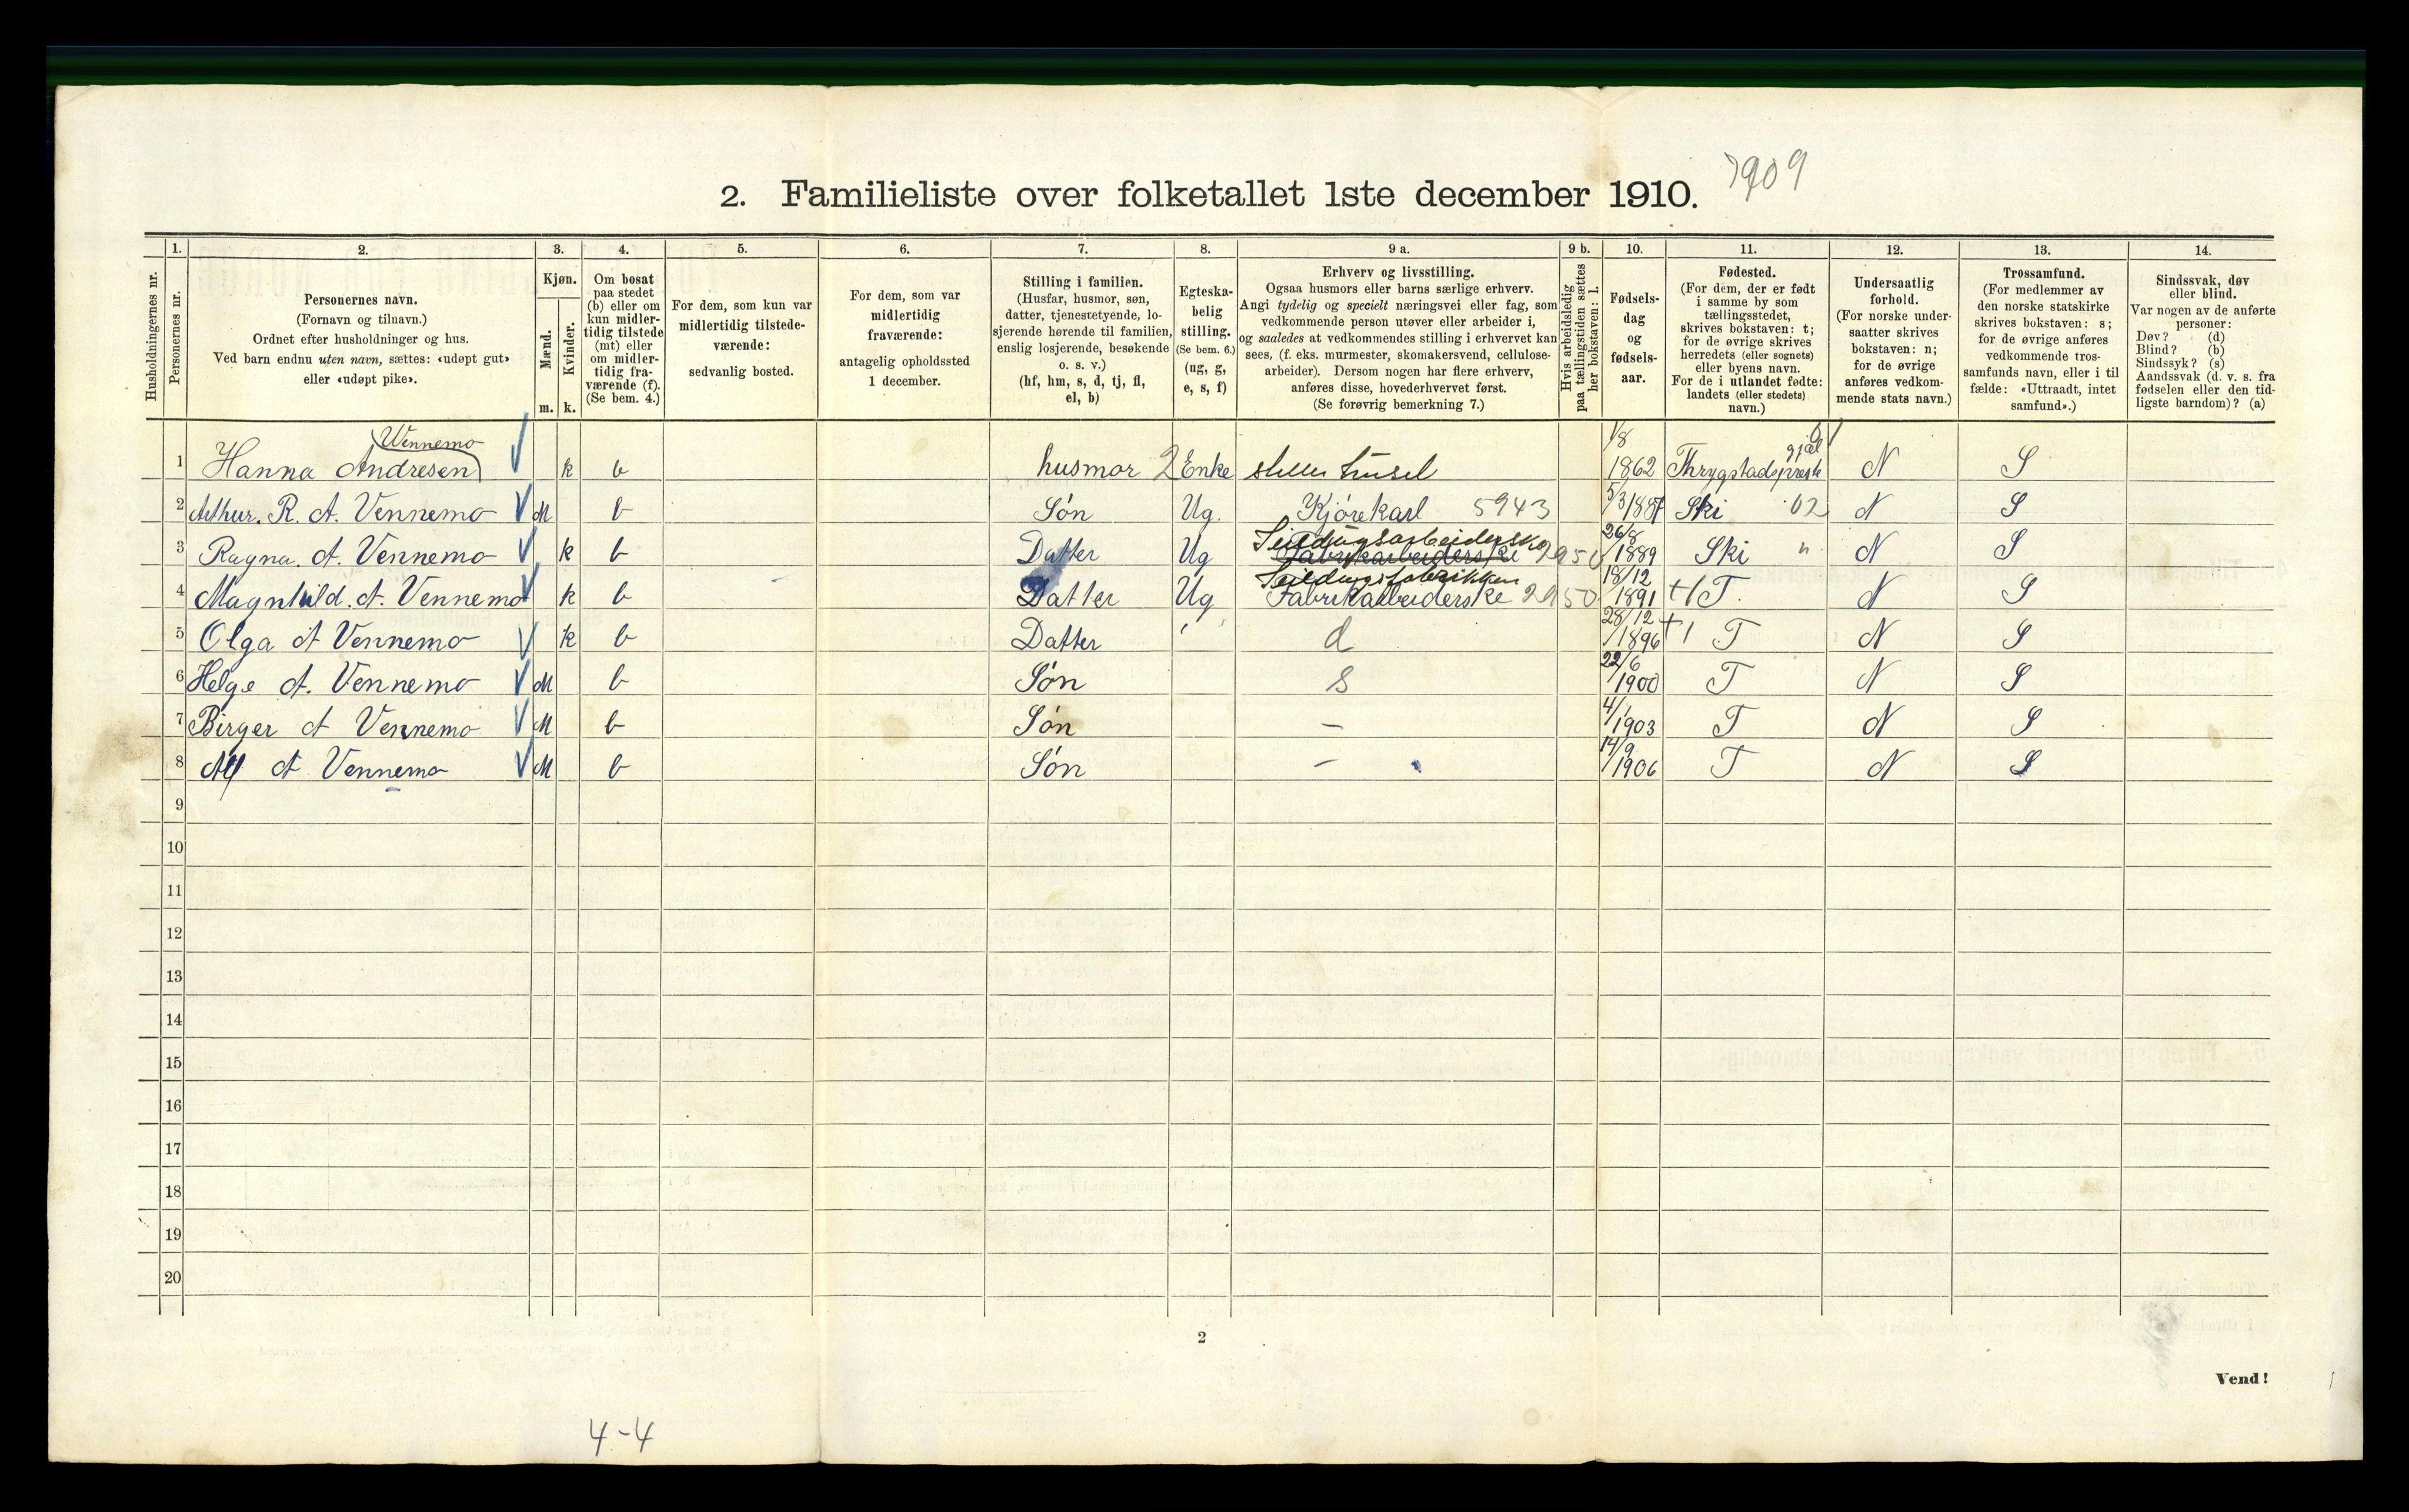 2. Familieliste over folketallet 1ste december 1910. 7909
Husholdningernes nr.
1. Personernes nr.
2. Personernes navn.
(Fornavn og tilnavn.)
Ordnet efter husholdninger og hus.
Ved barn endnu uten navn, sættes: «udøpt gut»
eller «udøpt pike».
3. Kjøn.
Mænd. m.
Kvinder. k.
4. Om bosat
paa stedet
(b) eller om
kun midler-
tidig tilstede
(mt) eller
om midler-
tidig fra-
værende (f).
(Se bem. 4.)
5. For dem, som kun var
midlertidig tilstede-
værende:
sedvanlig bosted.
6. For dem, som var
midlertidig
fraværende:
antagelig opholdssted
1 december.
7. Stilling i familien.
(Husfar, husmor, søn,
datter, tjenestetyende, lo-
sjerende hørende til familien,
enslig losjerende, besøkende
o. s. v.)
(hf, hm, s, d, tj, fl,
el, b)
8. Egteska-
belig
stilling.
(Se bem. 6.)
(ug, g,
e, s, f)
9 a. Erhverv og livsstilling.
Ogsaa husmors eller barns særlige erhverv.
Angi tydelig og specielt næringsvei eller fag, som
vedkommende person utøver eller arbeider i,
og saaledes at vedkommendes stilling i erhvervet kan
sees, (f. eks. murmester, skomakersvend, cellulose-
arbeider). Dersom nogen har flere erhverv,
anføres disse, hovederhvervet først.
(Se forøvrig bemerkning 7.)
9 b. Hvis arbeidsledig
paa tællingstiden sættes
her bokstaven: l.
10. Fødsels-
dag
og
fødsels-
aar.
11. Fødested.
(For dem, der er født
i samme by som
tællingsstedet,
skrives bokstaven: t;
for de øvrige skrives
herredets (eller sognets)
eller byens navn.
For de i utlandet fødte:
landets (eller stedets)
navn.)
12. Undersaatlig
forhold.
(For norske under-
saatter skrives
bokstaven: n;
for de øvrige
anføres vedkom-
mende stats navn.)
13. Trossamfund.
(For medlemmer av
den norske statskirke
skrives bokstaven: s;
for de øvrige anføres
vedkommende tros-
samfunds navn, eller i til
fælde: «Uttraadt, intet
samfund».)
14. Sindssvak, døv
eller blind.
Var nogen av de anførte
personer:
Døv? (d)
Blind? (b)
Sindssyk? (s)
Aandssvak (d. v. s. fra
fødselen eller den tid-
ligste barndom)? (a)
1 Hanna Andresen Vennemo k b husmor 2 Enke steller husel 1/8 1862 Thrygstadspreste gjæl N S
2 Arthur. R. A. Vennemo M b Søn Ug. Kjørekarl 5943 5/3 1887 Ski 02 N S
3 Ragna. A. Vennemo k b Datter Ug Fabrikarbeiderske Seildugsarbeiderske 2950 26/8 1889 Ski " N S
4 Magnhild. A. Vennemo k b Datter Ug Seildugsfabrikken Fabrikarbeiderske 2950 18/12 1891 T. N S
5 Olga A Vennemo k b Datter d 28/12 1896 T N S
6 Helge A. Vennemo M b Søn s 22/6 1900 T N S
7 Birger A Vennemo M b Søn – 4/1 1903 T N S
8 Alf A Vennemo M b Søn – 14/9 1906 T N S
9
10
11
12
13
14
15
16
17
18
19
20
2
Vend!
4-4